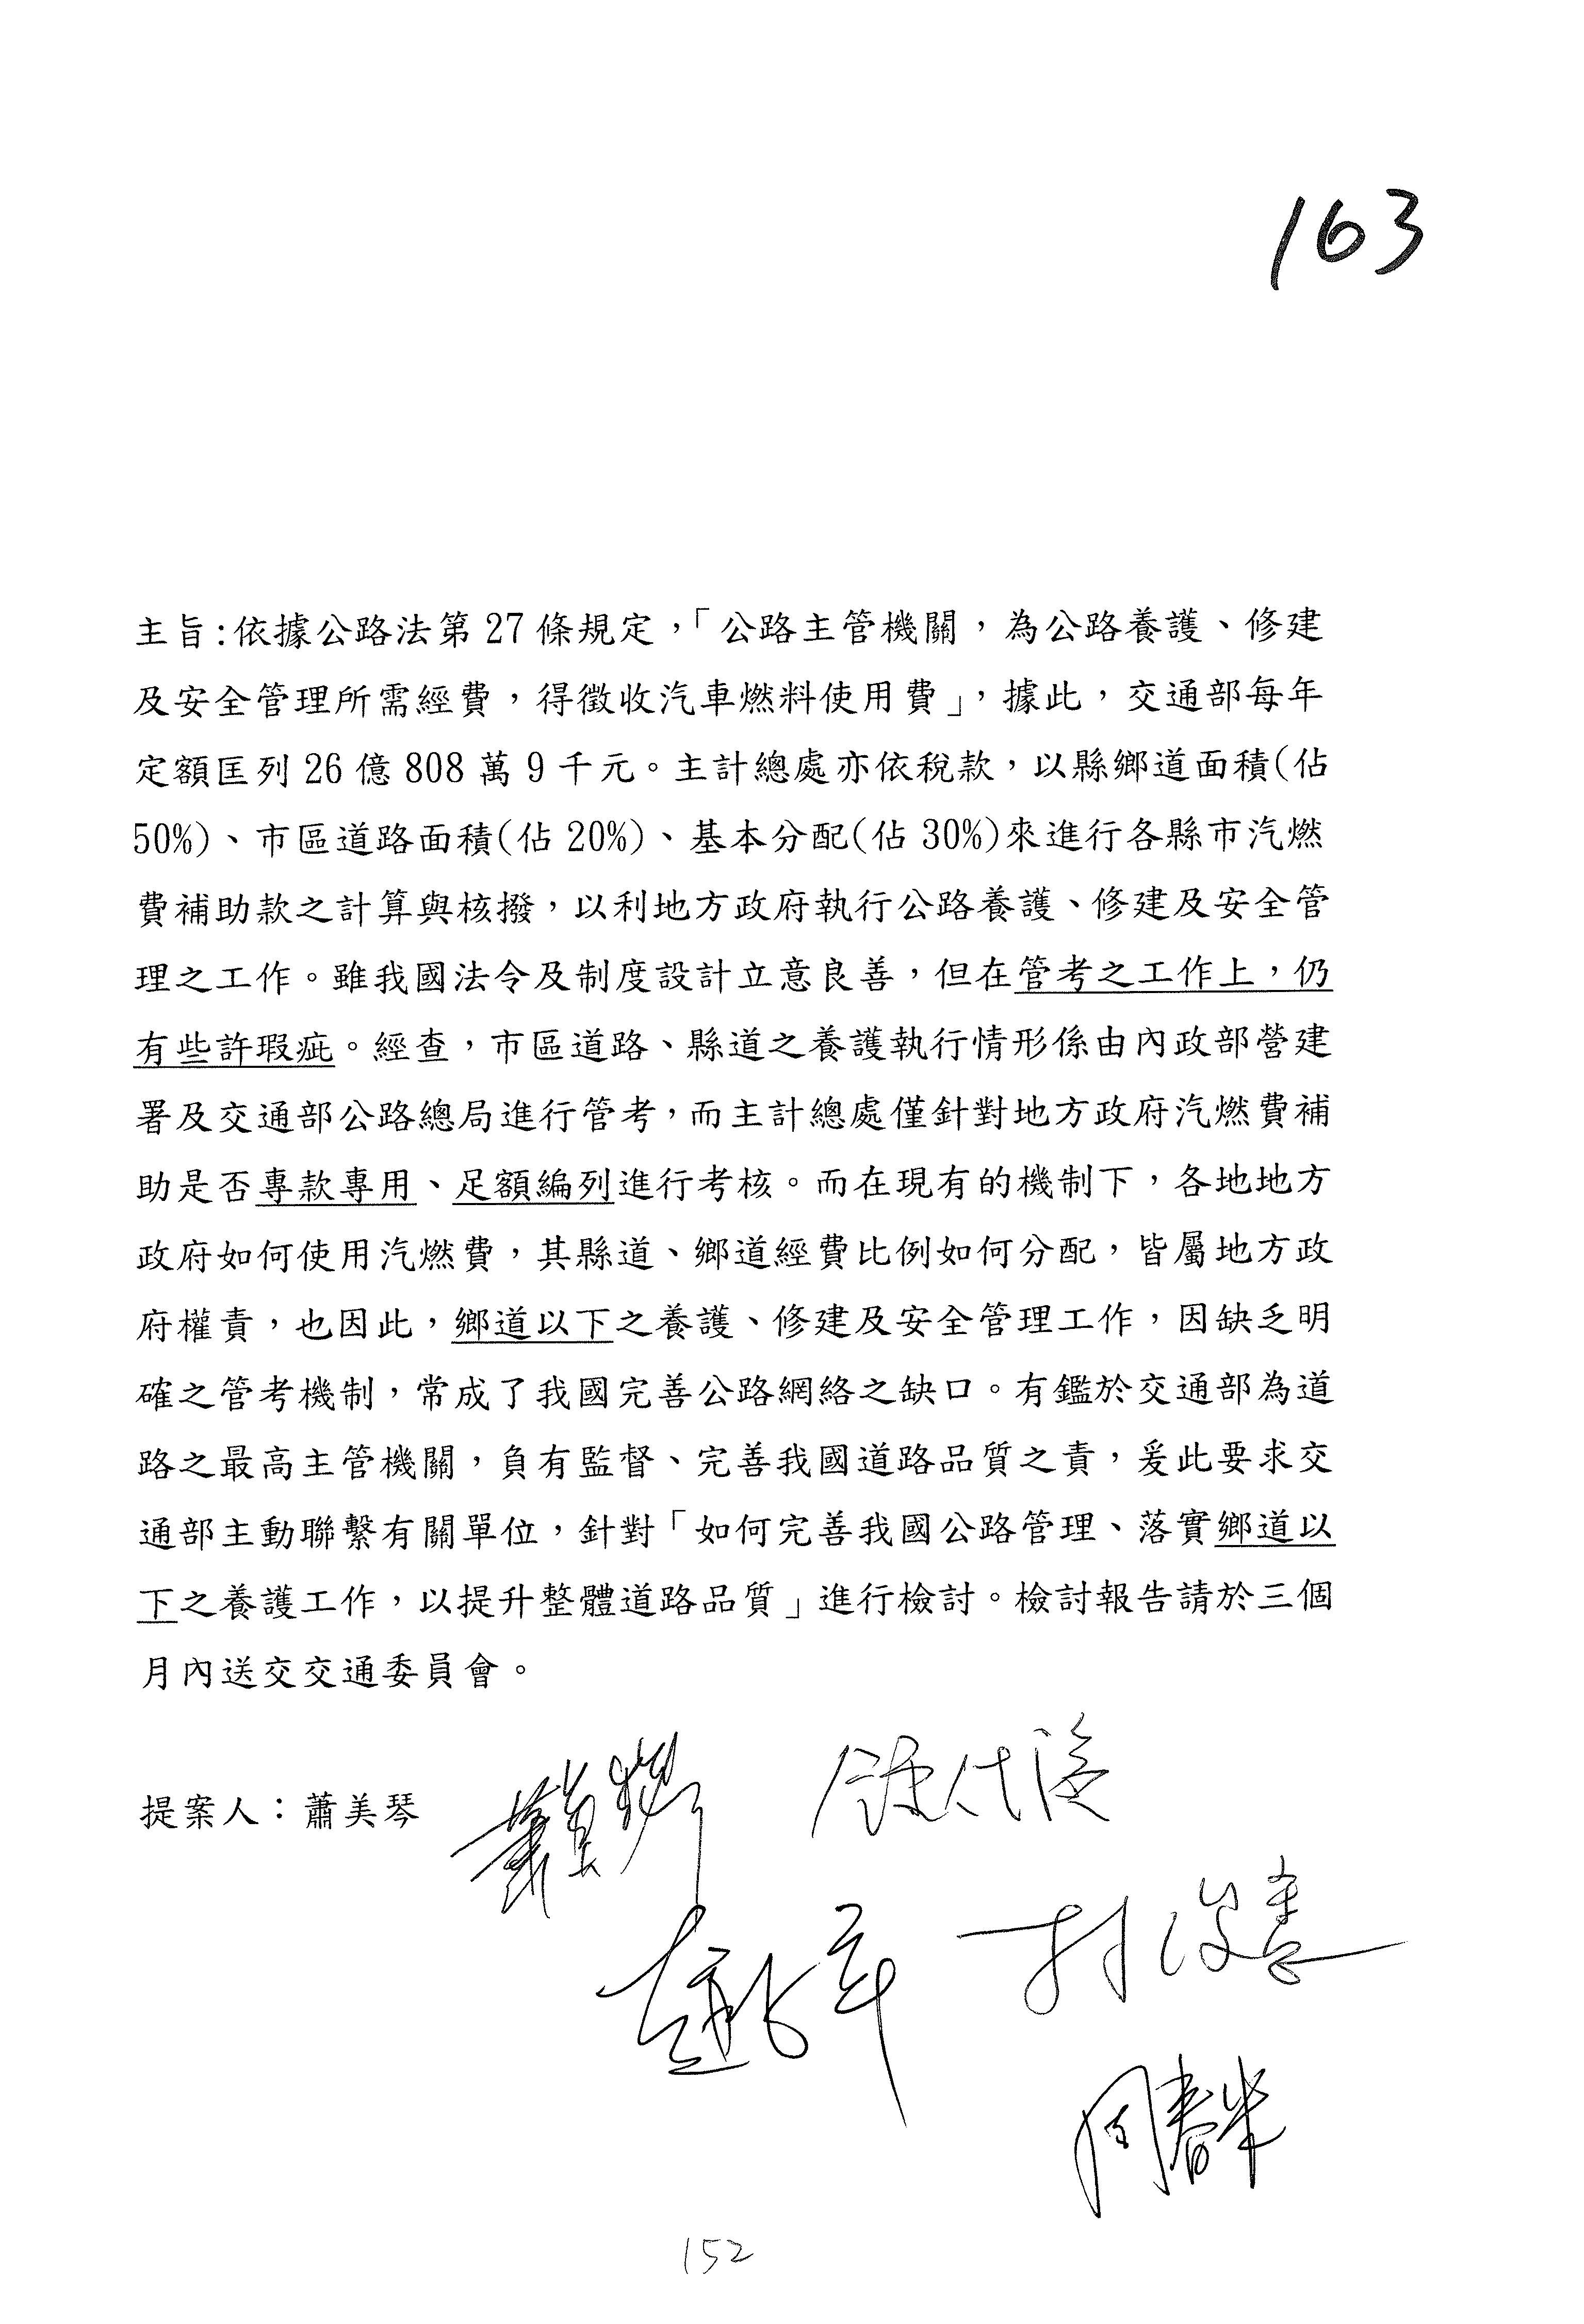 163
主旨:依據公路法第 27 條規定,「公路主管機關,為公路養護、修建
及安全管理所需經費,得徵收汽車燃料使用費」,據此,交通部每年
定額匡列 26 億 808 萬 9 千元。主計總處亦依稅款,以縣鄉道面積(佔
50%)、市區道路面積(佔 20%)、基本分配(佔 30%)來進行各縣市汽燃
費補助款之計算與核撥,以利地方政府執行公路養護、修建及安全管
理之工作。雖我國法令及制度設計立意良善,但在管考之工作上,仍
有些許瑕疵。經查,市區道路、縣道之養護執行情形係由內政部營建
署及交通部公路總局進行管考,而主計總處僅針對地方政府汽燃費補
助是否專款專用、足額編列進行考核。而在現有的機制下,各地地方
政府如何使用汽燃費,其縣道、鄉道經費比例如何分配,皆屬地方政
府權責,也因此,鄉道以下之養護、修建及安全管理工作,因缺乏明
確之管考機制,常成了我國完善公路網絡之缺口。有鑑於交通部為道
路之最高主管機關,負有監督、完善我國道路品質之責,爰此要求交
通部主動聯繫有關單位,針對「如何完善我國公路管理、落實鄉道以
下之養護工作,以提升整體道路品質」進行檢討。檢討報告請於三個
月內送交交通委員會。
提案人:蕭美琴
蕭美琴
152